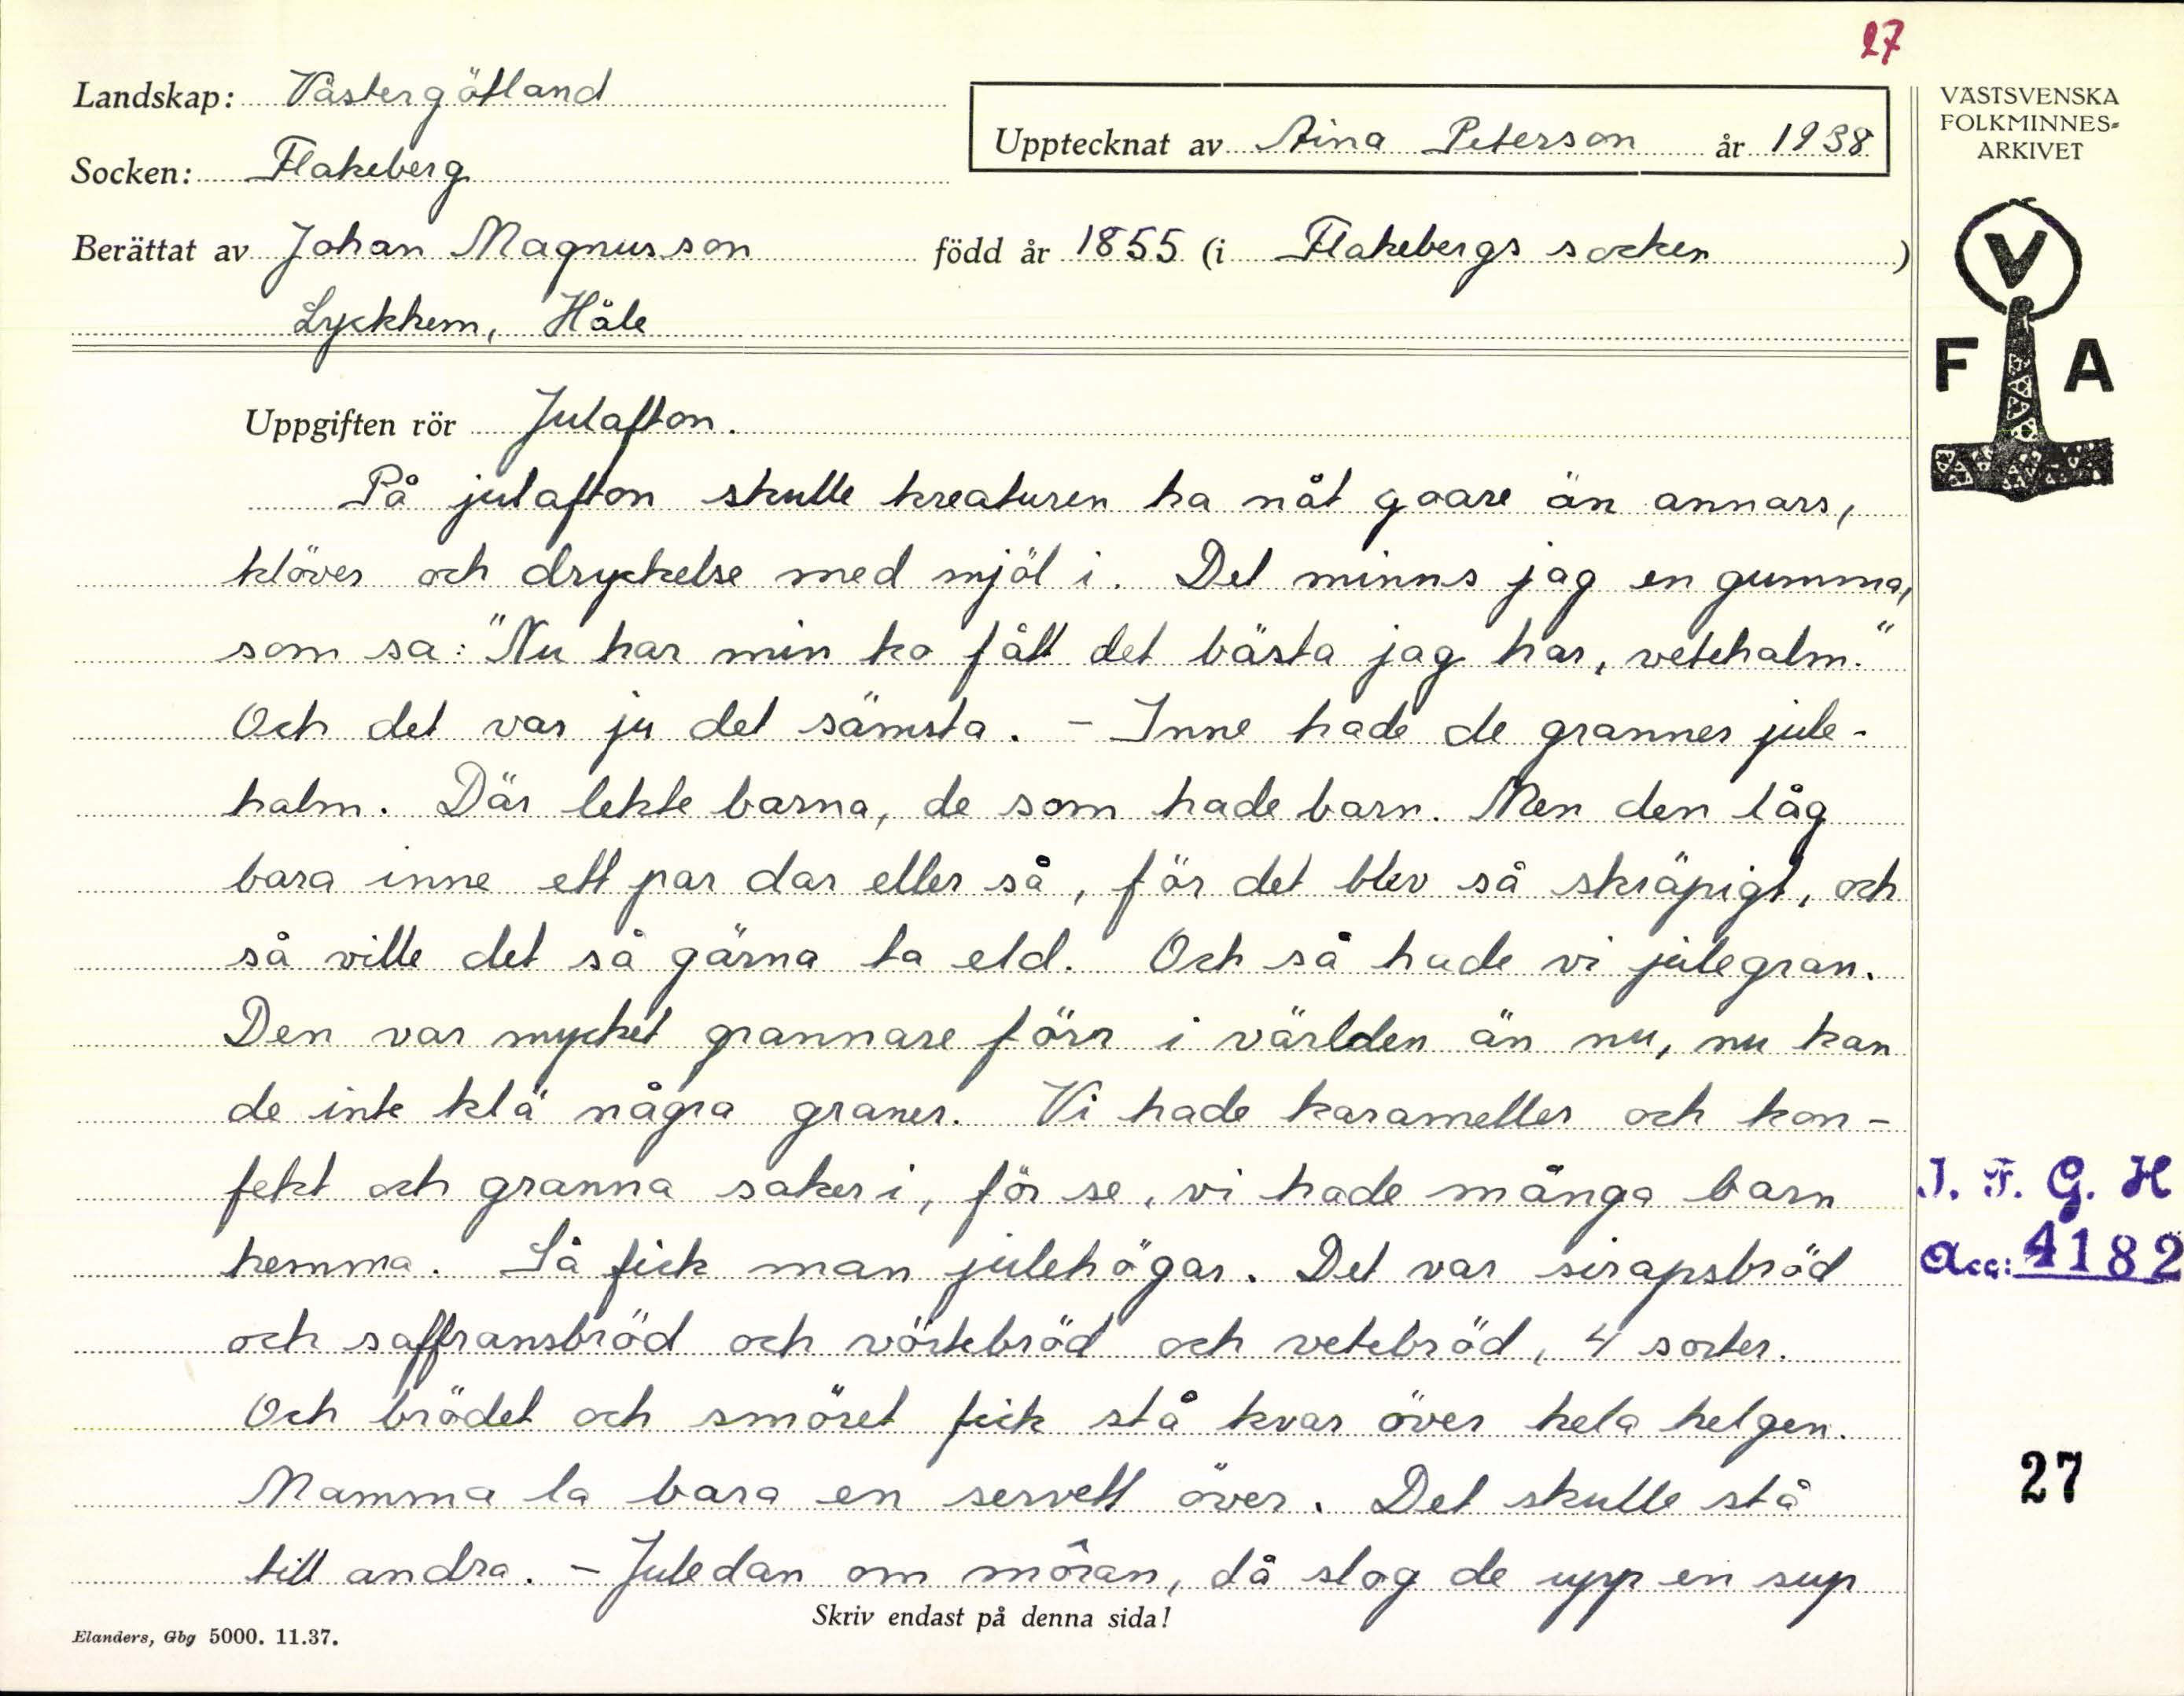 27
Landskap: Västergötland
Socken: Flakeberg
Upptecknat av Aina Peterson år 1938
Berättat av Johan Magnusson född år 1855 (i Flakebergs socken)
Lyckhem, Håle
VÄSTSVENSKA
FOLKMINNES-
ARKIVET
V
F A
Uppgiften rör Julafton.
På julafton skulle kreaturen ha nåt goare än annars,
klöver och dryckelse med mjöl i. Det minns jag en gumma,
som sa: "Nu har min ko fått det bästa jag har, vetehalm."
Och det var ju det sämsta. - Inne hade de granner jule-
halm. Där lekte barna, de som hade barn. Men den låg
bara inne ett par dar eller så, för det blev så skräpigt, och
så ville det så gärna ta eld. Och så hade vi julegran.
Den var mycket grannare förr i världen än nu, nu kan
de inte klä några graner. Vi hade karameller och kon-
fekt och granna saker i, för se, vi hade många barn
hemma. Så fick man julehögar. Det var sirapsbröd
och saffransbröd och vörtebröd och vetebröd, 4 sorter.
Och brödet och smöret fick stå kvar över hela helgen.
Mamma la bara en servett över. Det skulle stå
till andra. - Juledan om môran, då slog de upp en sup
I. F. G. H
Acc: 4182
27
Skriv endast på denna sida!
Elanders, Gbg 5000. 11.37.